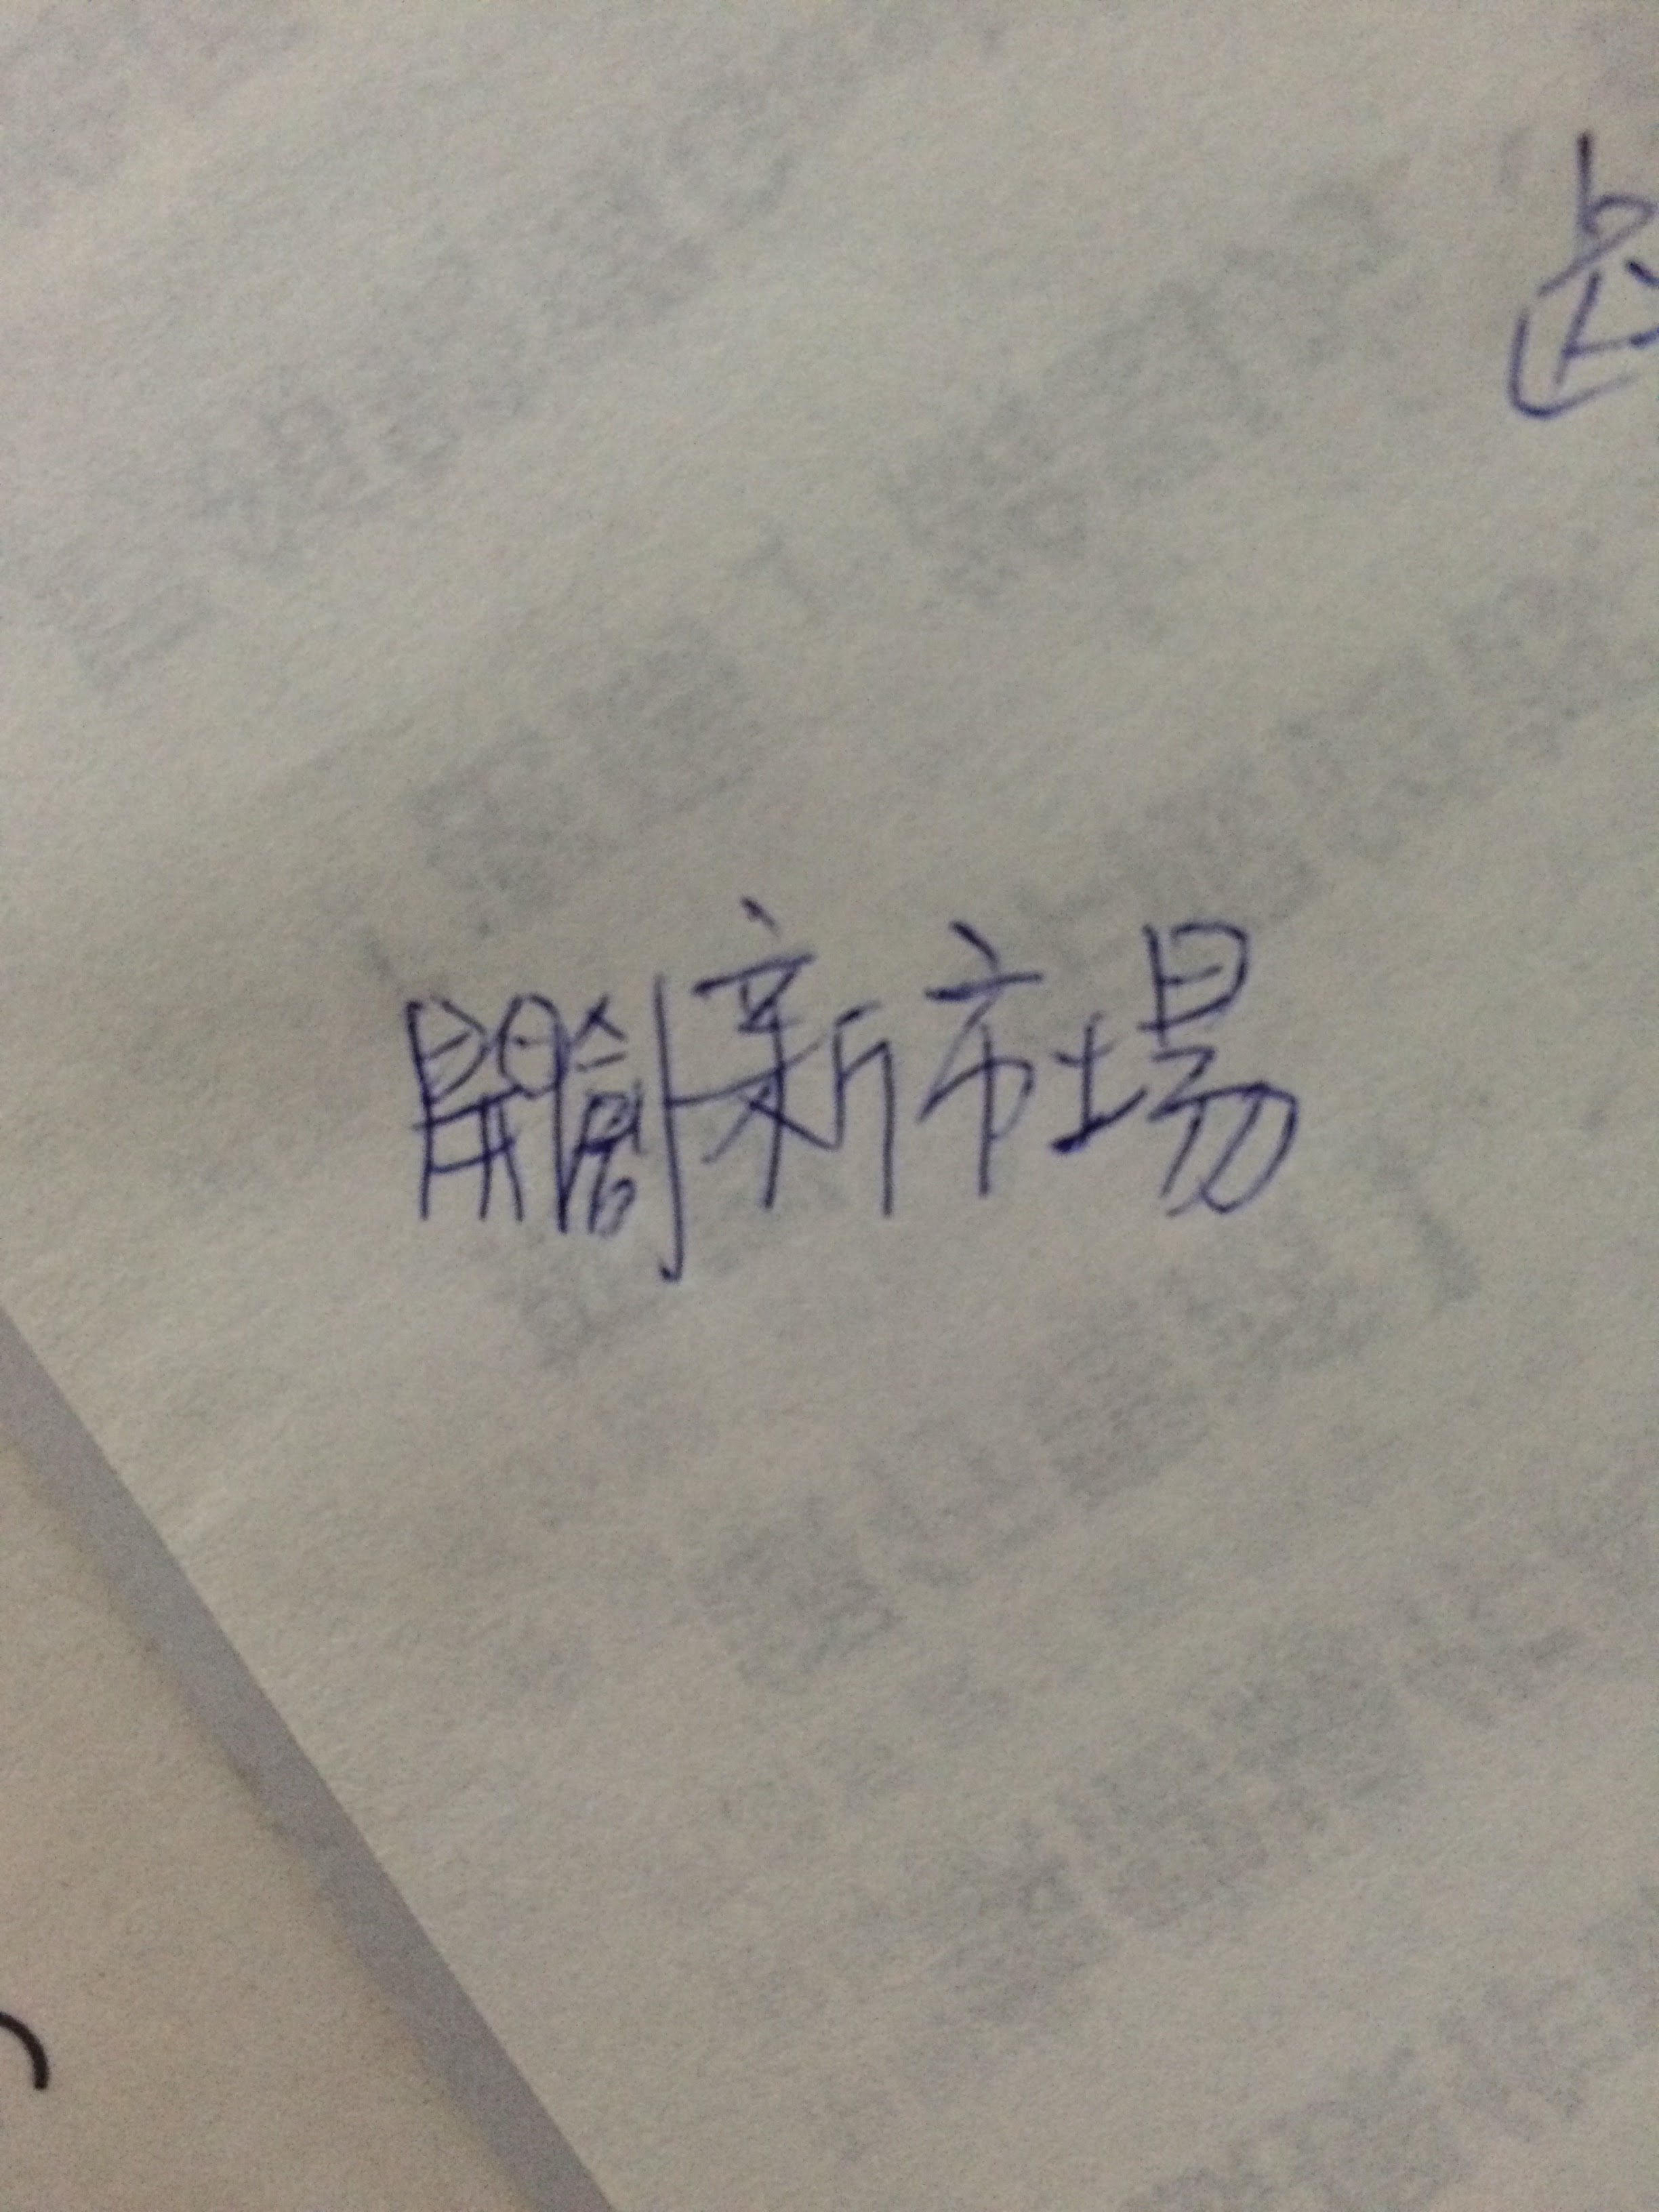 開創新市場